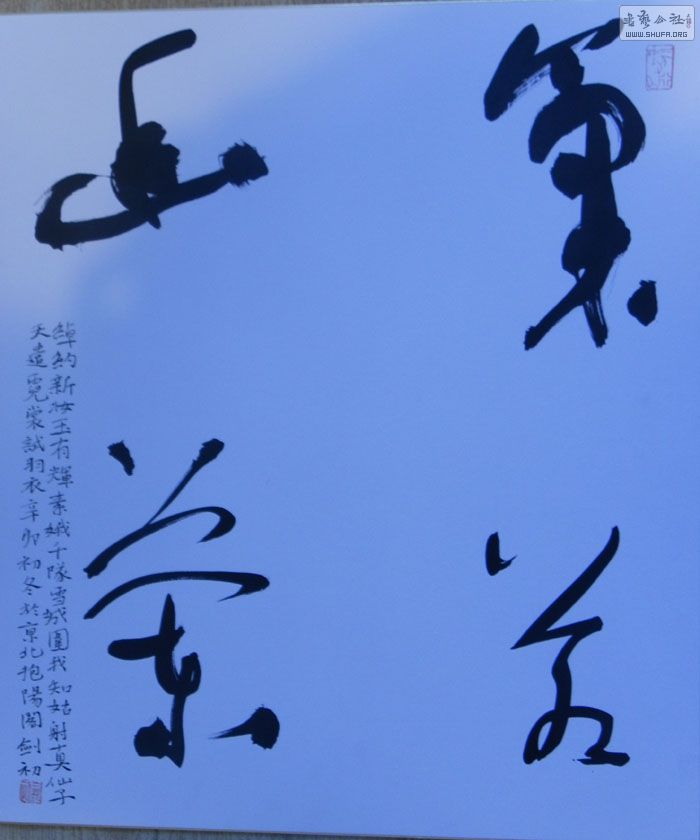 書藝公社
WWW.SHUFA.ORG
氣若
幽蘭
綽約新妝玉有輝素娥千隊雪城圍我知姑射真仙子
天遣霓裳試羽衣辛卯初冬於京北抱陽閣劍初